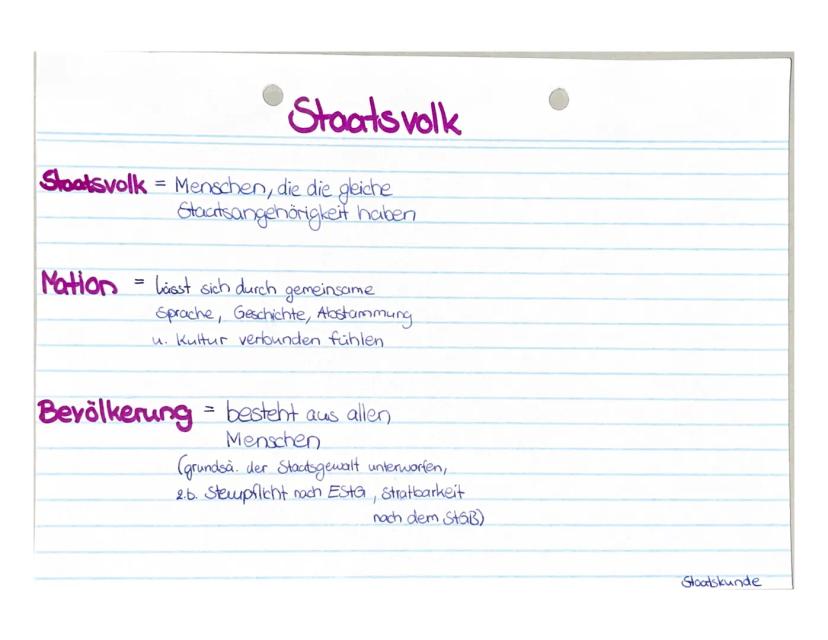 Staatsvolk
Staatsvolk = Menschen, die die gleiche
Staatsangehörigkeit haben
Nation = lässt sich durch gemeinsame
Sprache, Geschichte, Abstammung
u. Kultur verbunden fühlen
Bevölkerung = besteht aus allen
Menschen
(grundsä. der Staatsgewalt unterworfen,
z.b. Steupflicht nach EStG, Strafbarkeit
nach dem StGB)
Staatskunde